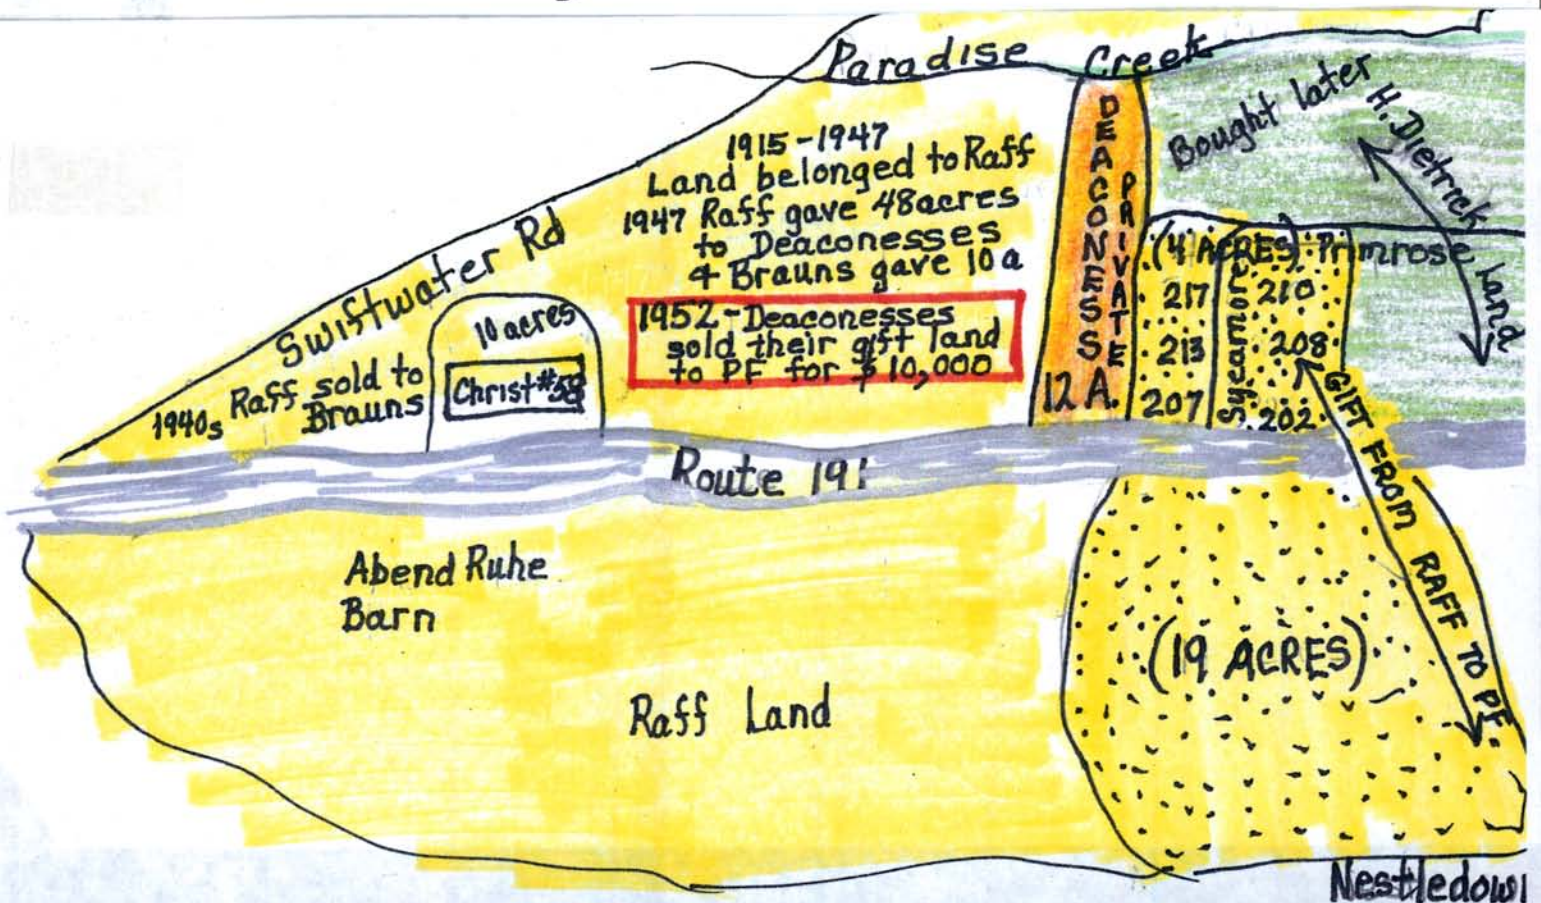 Paradise Creek
1915-1947
Land belonged to Raff
1947 Raff gave 48acres
to Deaconesses
4 Brauns gave 10a
1952-Deaconesses
sold their gift land
to PF for $10,000
Swiftwater Rd
1940s Raff sold to
Brauns
10 acres
Christ #58
DEACONESS
PRIVATE
12 A.
Bought later
H. Dietrick
Land
(4 ACRES) Primrose
217
213
207
Sycamore
210
208
202
GIFT FROM RAFF TO PF.
Route 191
Abend Ruhe
Barn
Raff Land
(19 ACRES)
Nestledow